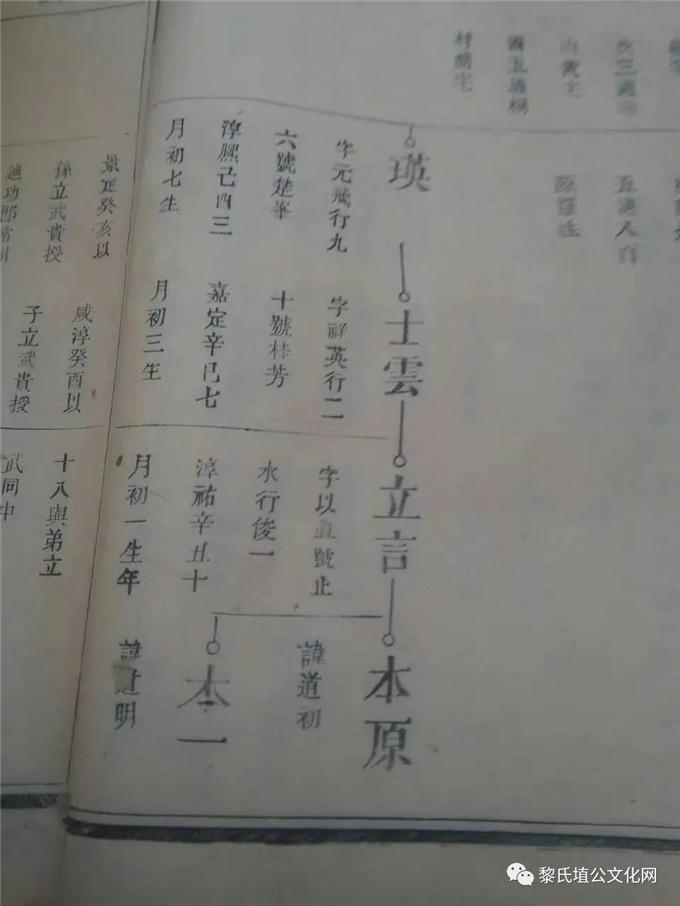 瑛
字元飛行九
六號楚峯
淳熙己酉三
月初七生
士雲
字祥英行二
十號桂芳
嘉定辛巳七
月初三生
立言
字以直號止
水行俊一
淳祐辛丑十
月初一生年
本原
諱道初
本一
諱道明
景定癸亥以
孫立武貴授
廸功郎常州
咸淳癸酉以
子立武貴授
十八與弟立
武同中
村蘭宅
黎氏埴公文化网